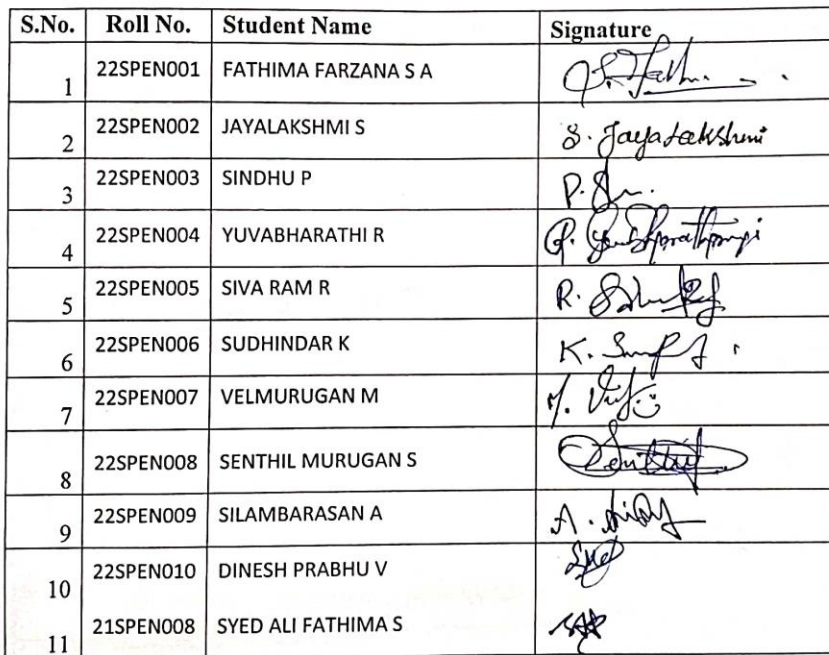 S.No. Roll No. Student Name Signature
1 22SPEN001 FATHIMA FARZANA S A
2 22SPEN002 JAYALAKSHMI S S. Jayalakshmi
3 22SPEN003 SINDHU P
4 22SPEN004 YUVABHARATHI R
5 22SPEN005 SIVA RAM R
6 22SPEN006 SUDHINDAR K
7 22SPEN007 VELMURUGAN M
8 22SPEN008 SENTHIL MURUGAN S
9 22SPEN009 SILAMBARASAN A
10 22SPEN010 DINESH PRABHU V
11 21SPEN008 SYED ALI FATHIMA S